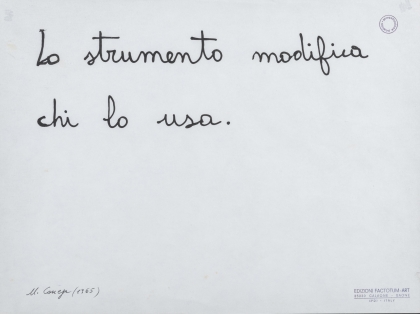 Lo strumento modifica
chi lo usa.
(1965)
EDIZIONI FACTOTUM-ART